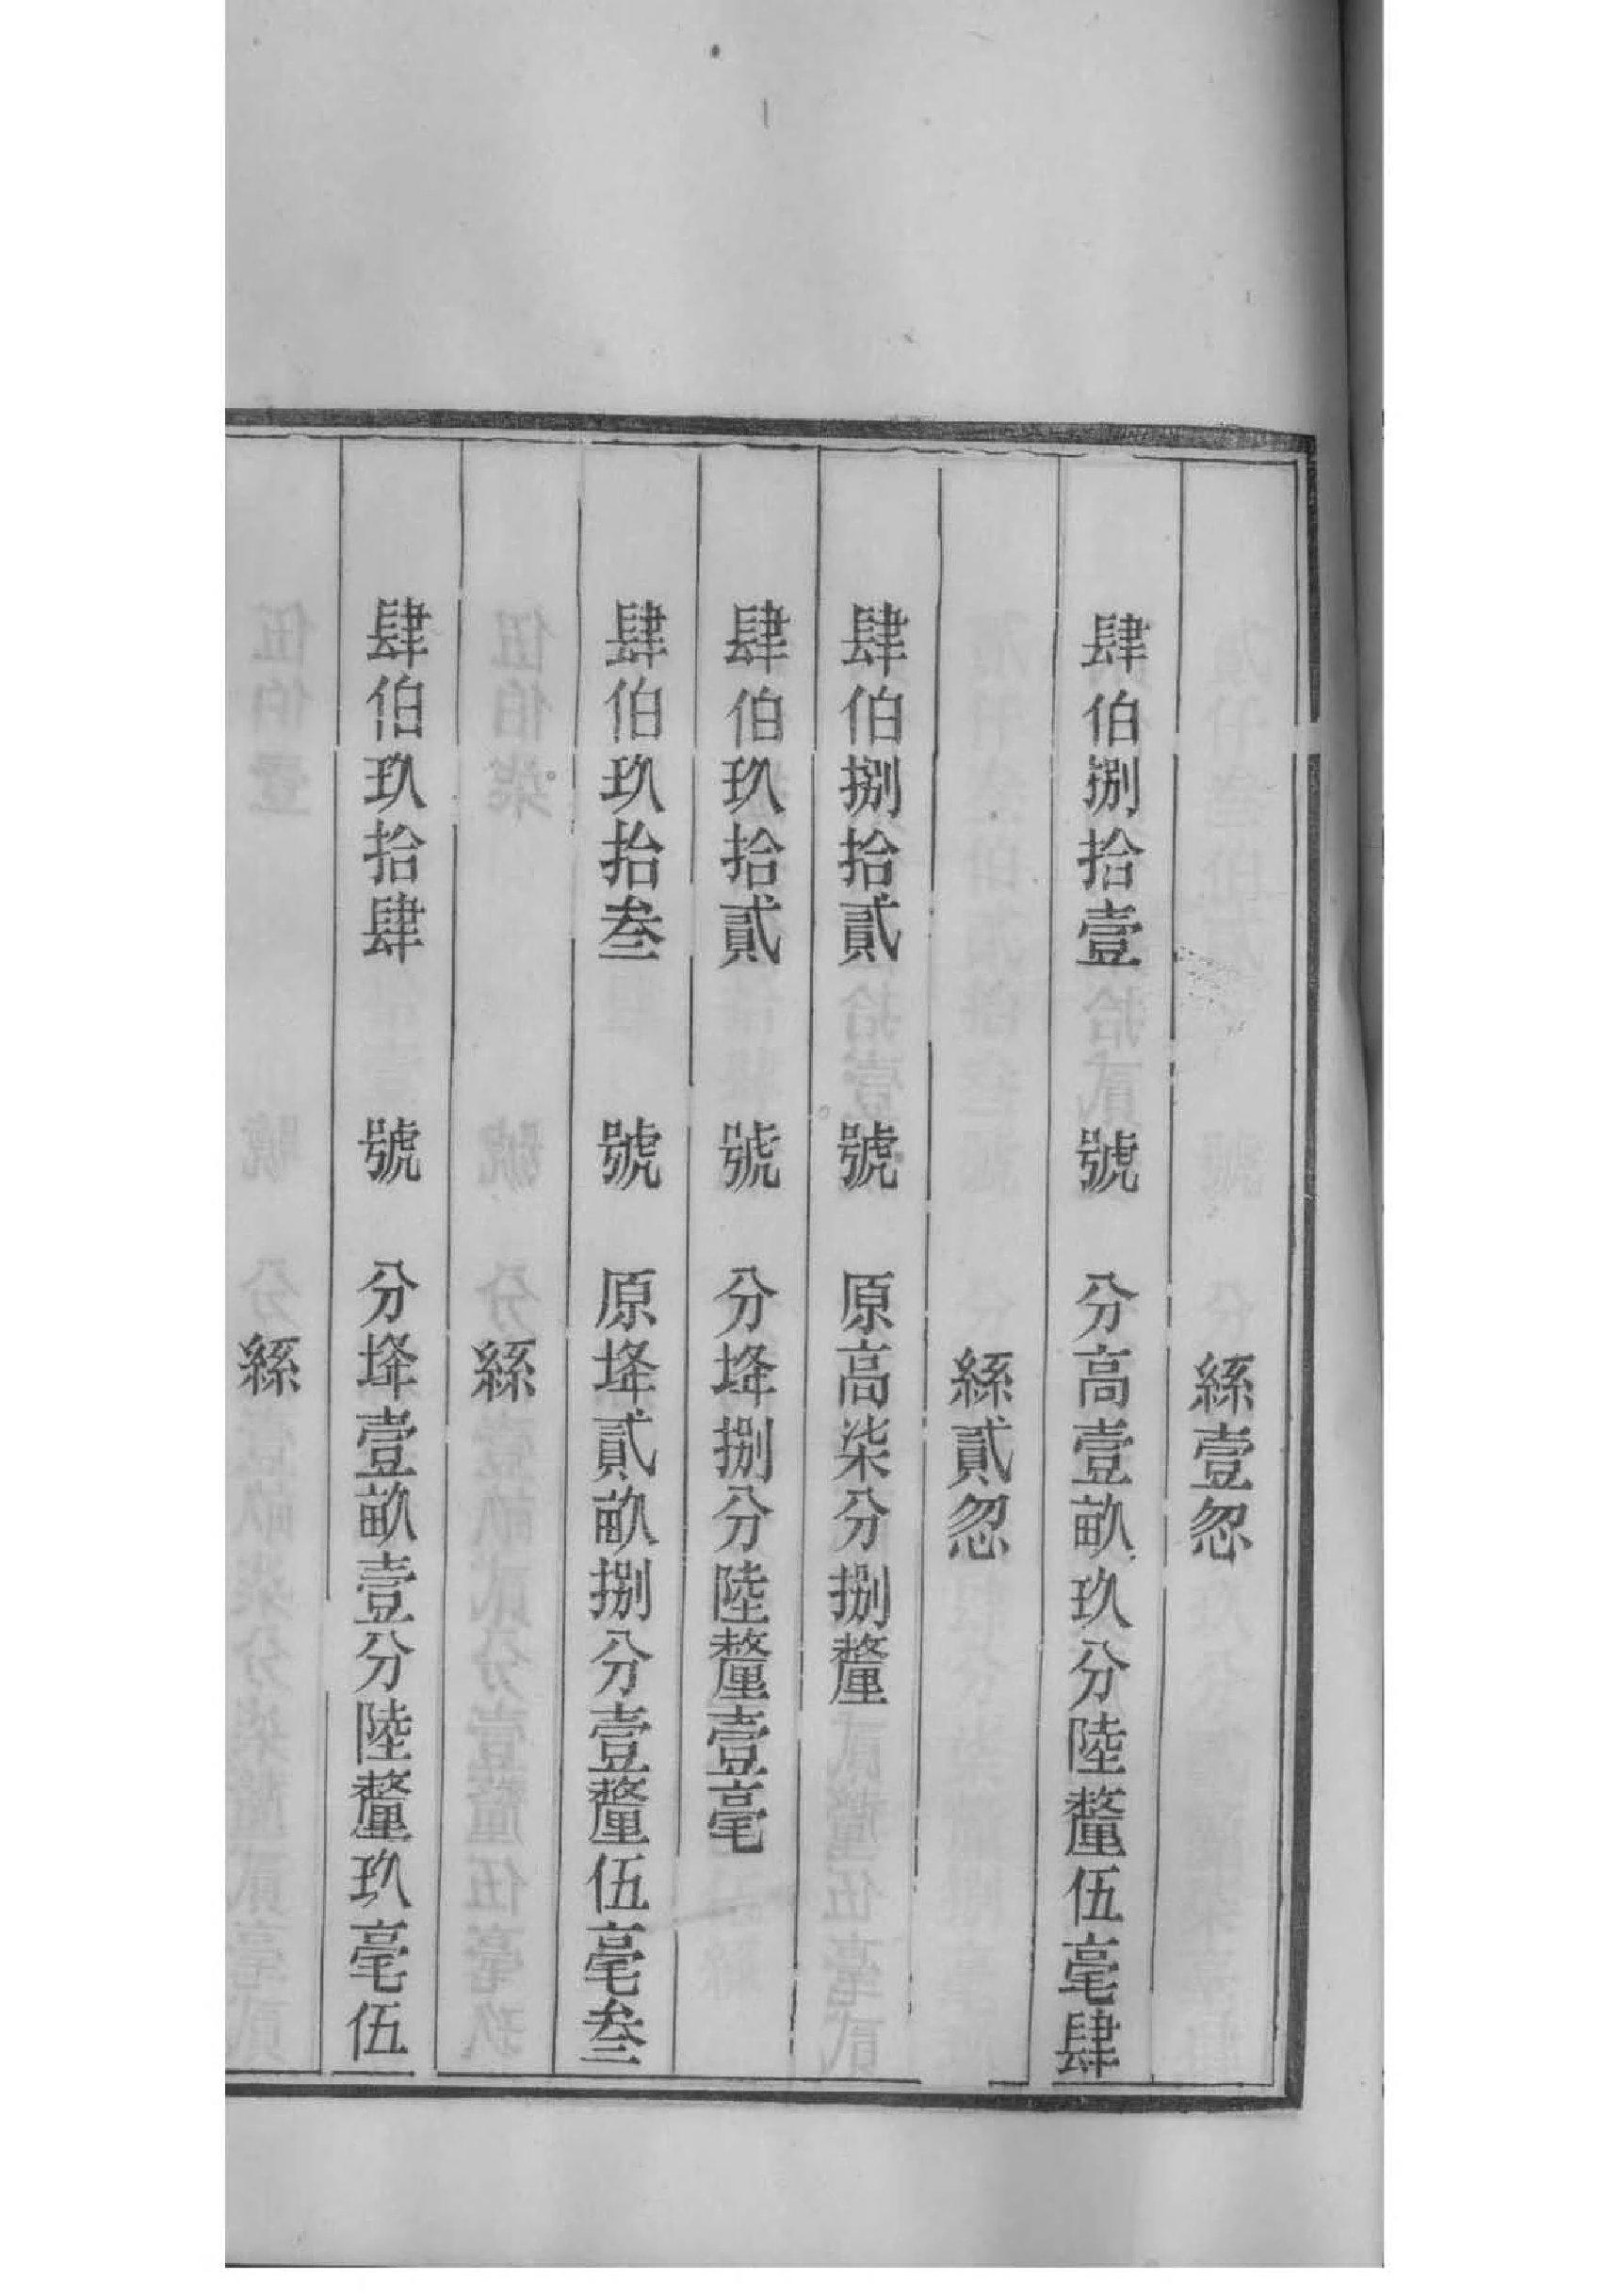 絲壹忽
肆伯捌拾壹 號 分高壹畝玖分陸釐伍毫肆
絲貳忽
肆伯捌拾貳 號 原高柒分捌釐
肆伯玖拾貳 號 分埄捌分陸釐壹毫
肆伯玖拾叁 號 原埄貳畝捌分壹釐伍毫叁
絲
肆伯玖拾肆 號 分埄壹畝壹分陸釐玖毫伍
絲